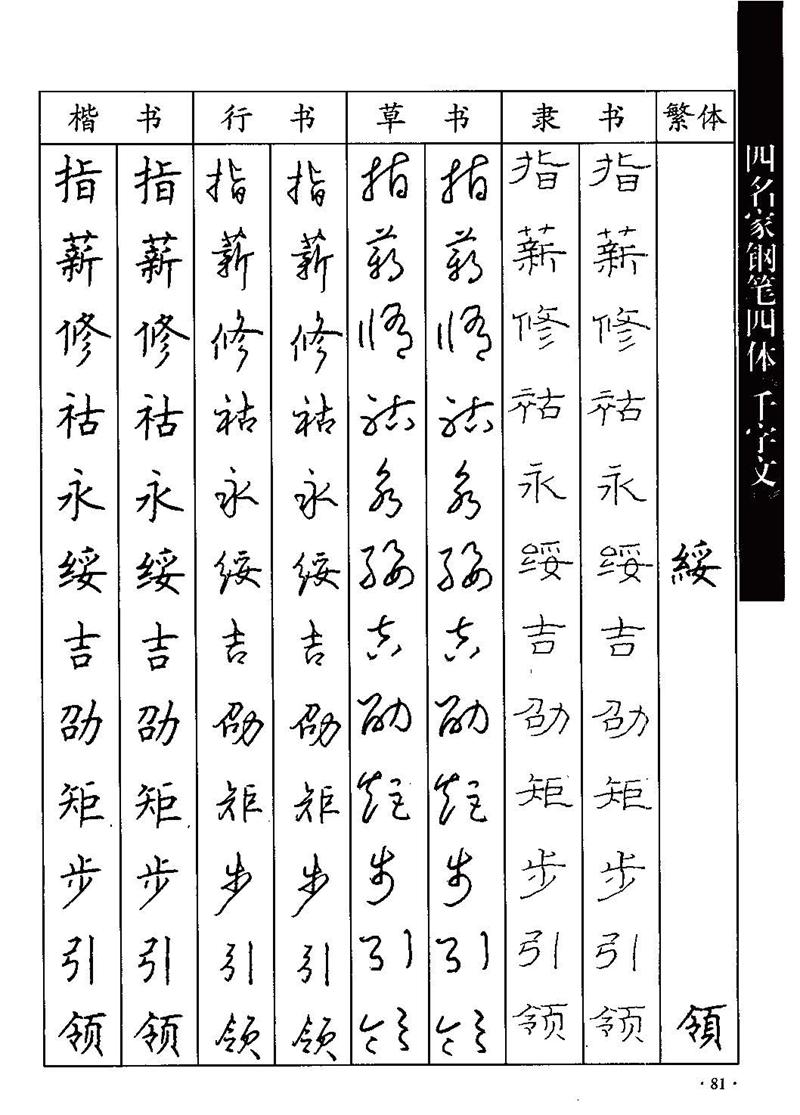 楷书 行书 草书 隶书 繁体
指 指 指 指 指 指 指 指
薪 薪 薪 薪 薪 薪 薪 薪
修 修 修 修 修 修 修 修
祜 祜 祜 祜 祜 祜 祜 祜
永 永 永 永 永 永 永 永
绥 绥 绥 绥 绥 绥 绥 绥 綏
吉 吉 吉 吉 吉 吉 吉 吉
劭 劭 劭 劭 劭 劭 劭 劭
矩 矩 矩 矩 矩 矩 矩 矩
步 步 步 步 步 步 步 步
引 引 引 引 引 引 引 引
领 领 领 领 领 领 领 领 領
四名家钢笔四体 千字文
·81·